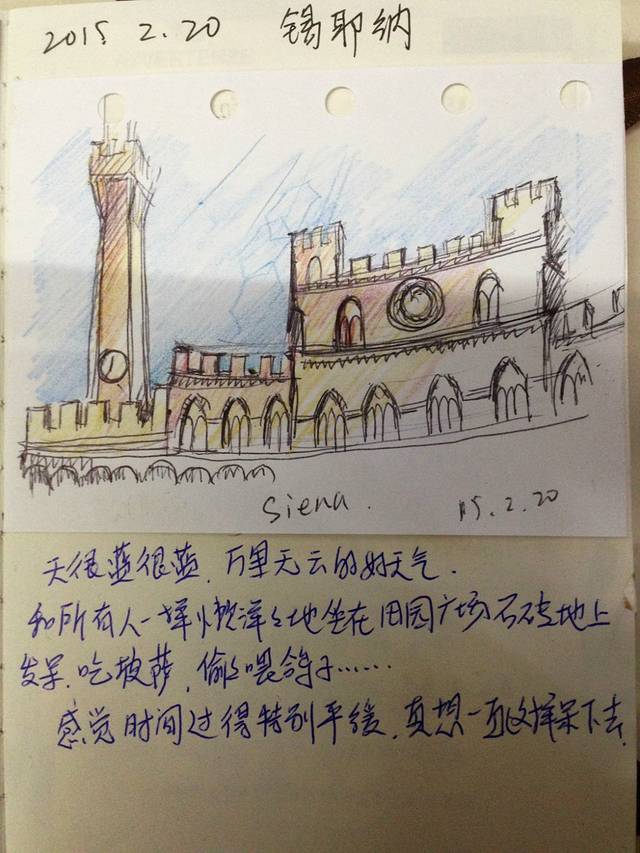 2015. 2. 20 锡耶纳
Siena.
15. 2. 20
天很蓝很蓝,万里无云的好天气.
和所有人一样懒洋々地坐在田园广场石砖地上
发呆.吃披萨,偷々喂鸽子……
感觉时间过得特别平缓,真想一直这样呆下去.